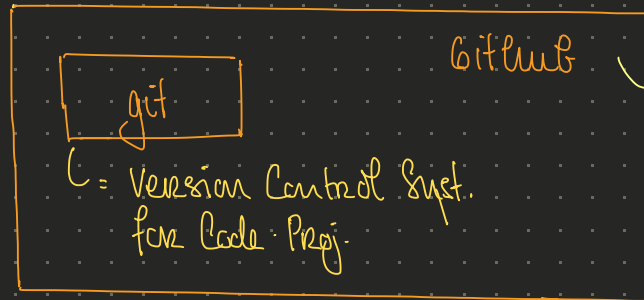 GitHub
git
= Version Control Syst.
for Code. Proj.